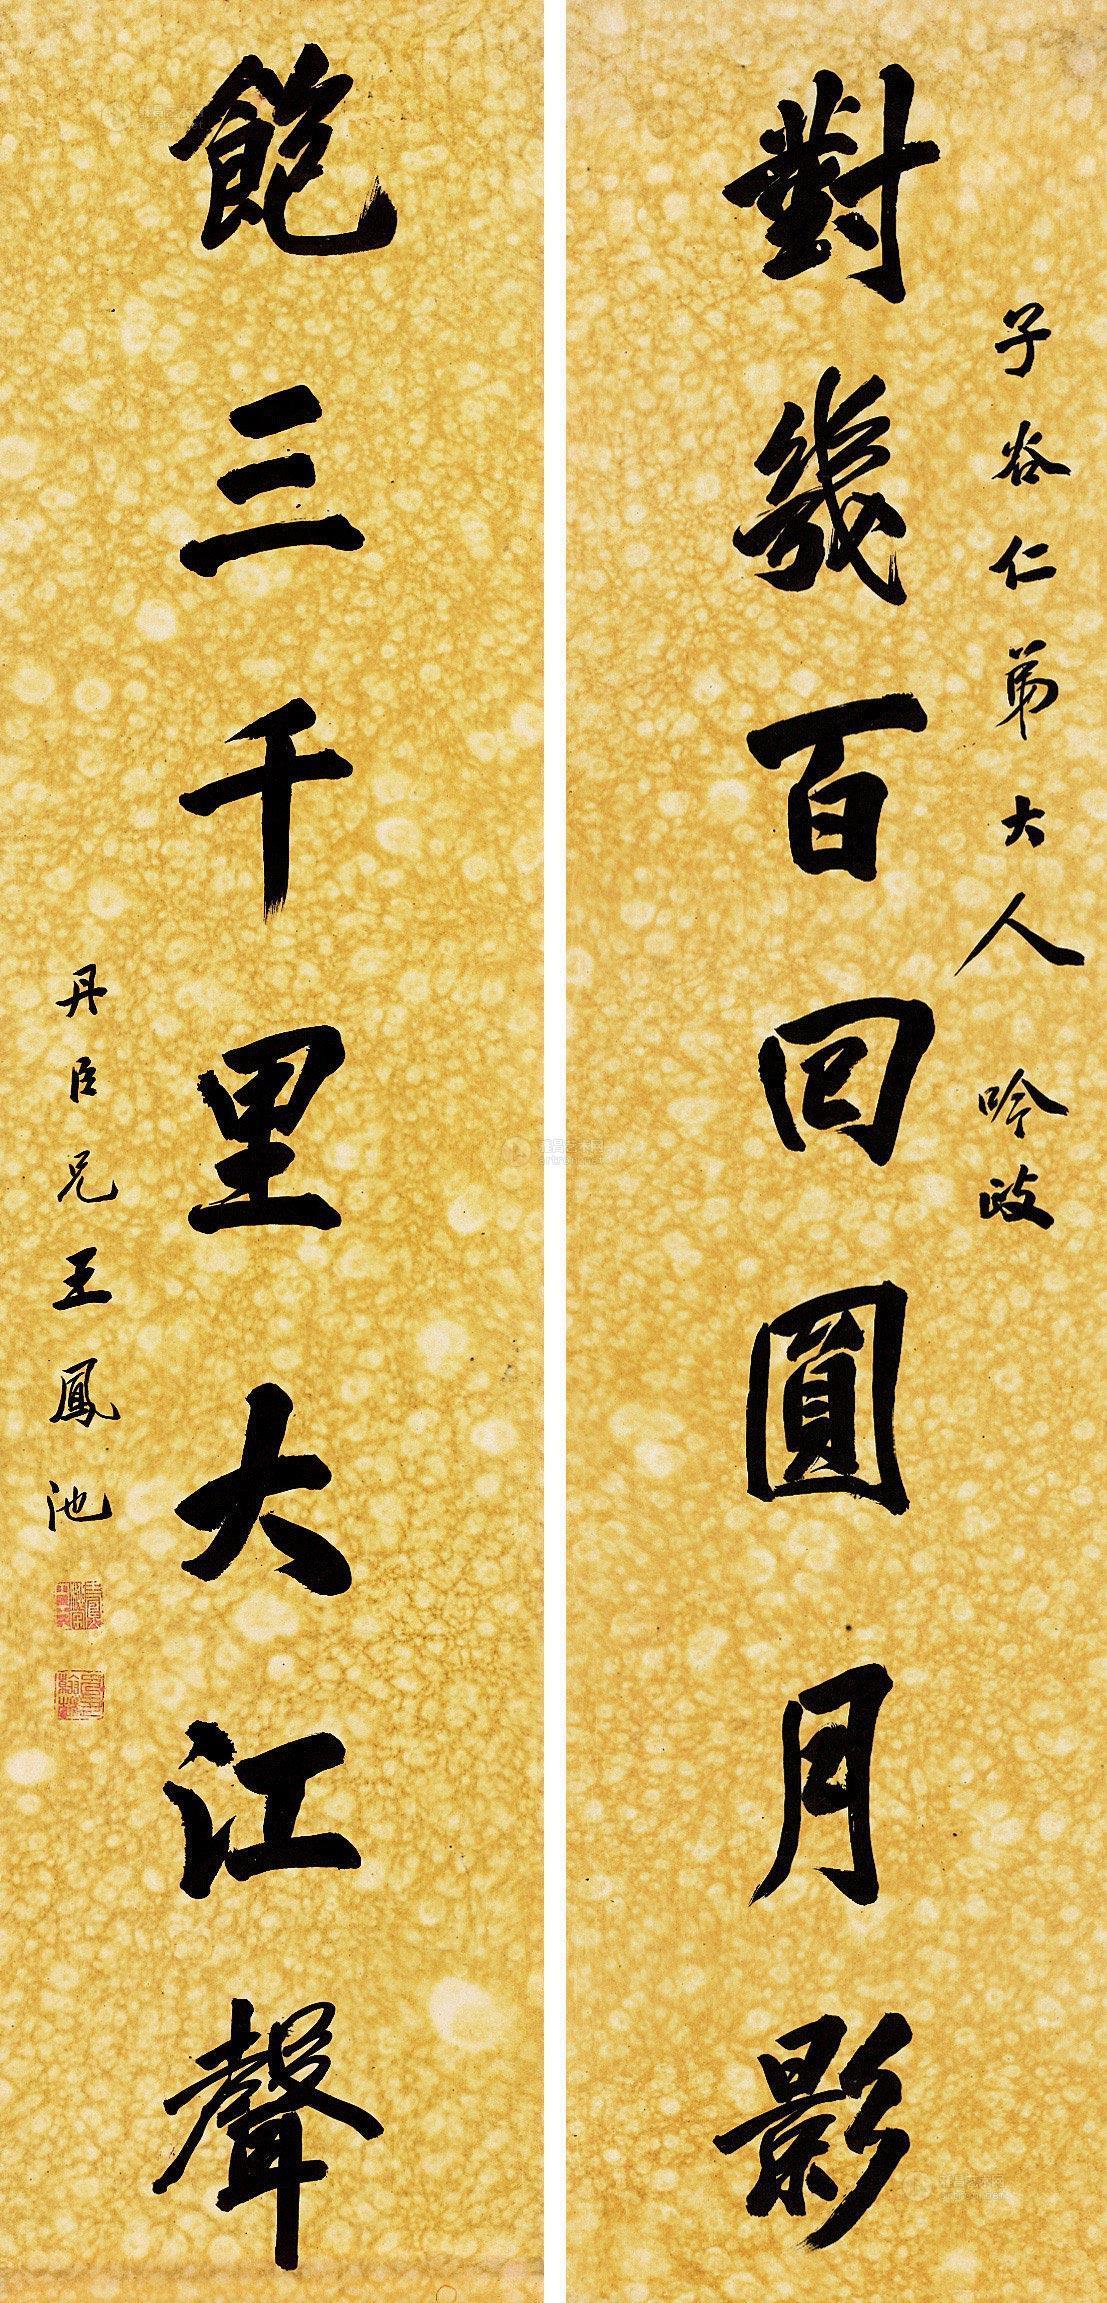 對幾百回圓月影
子谷仁弟大人 吟政
飽三千里大江聲
丹臣兄王鳳池
雅昌艺术网
artron.net